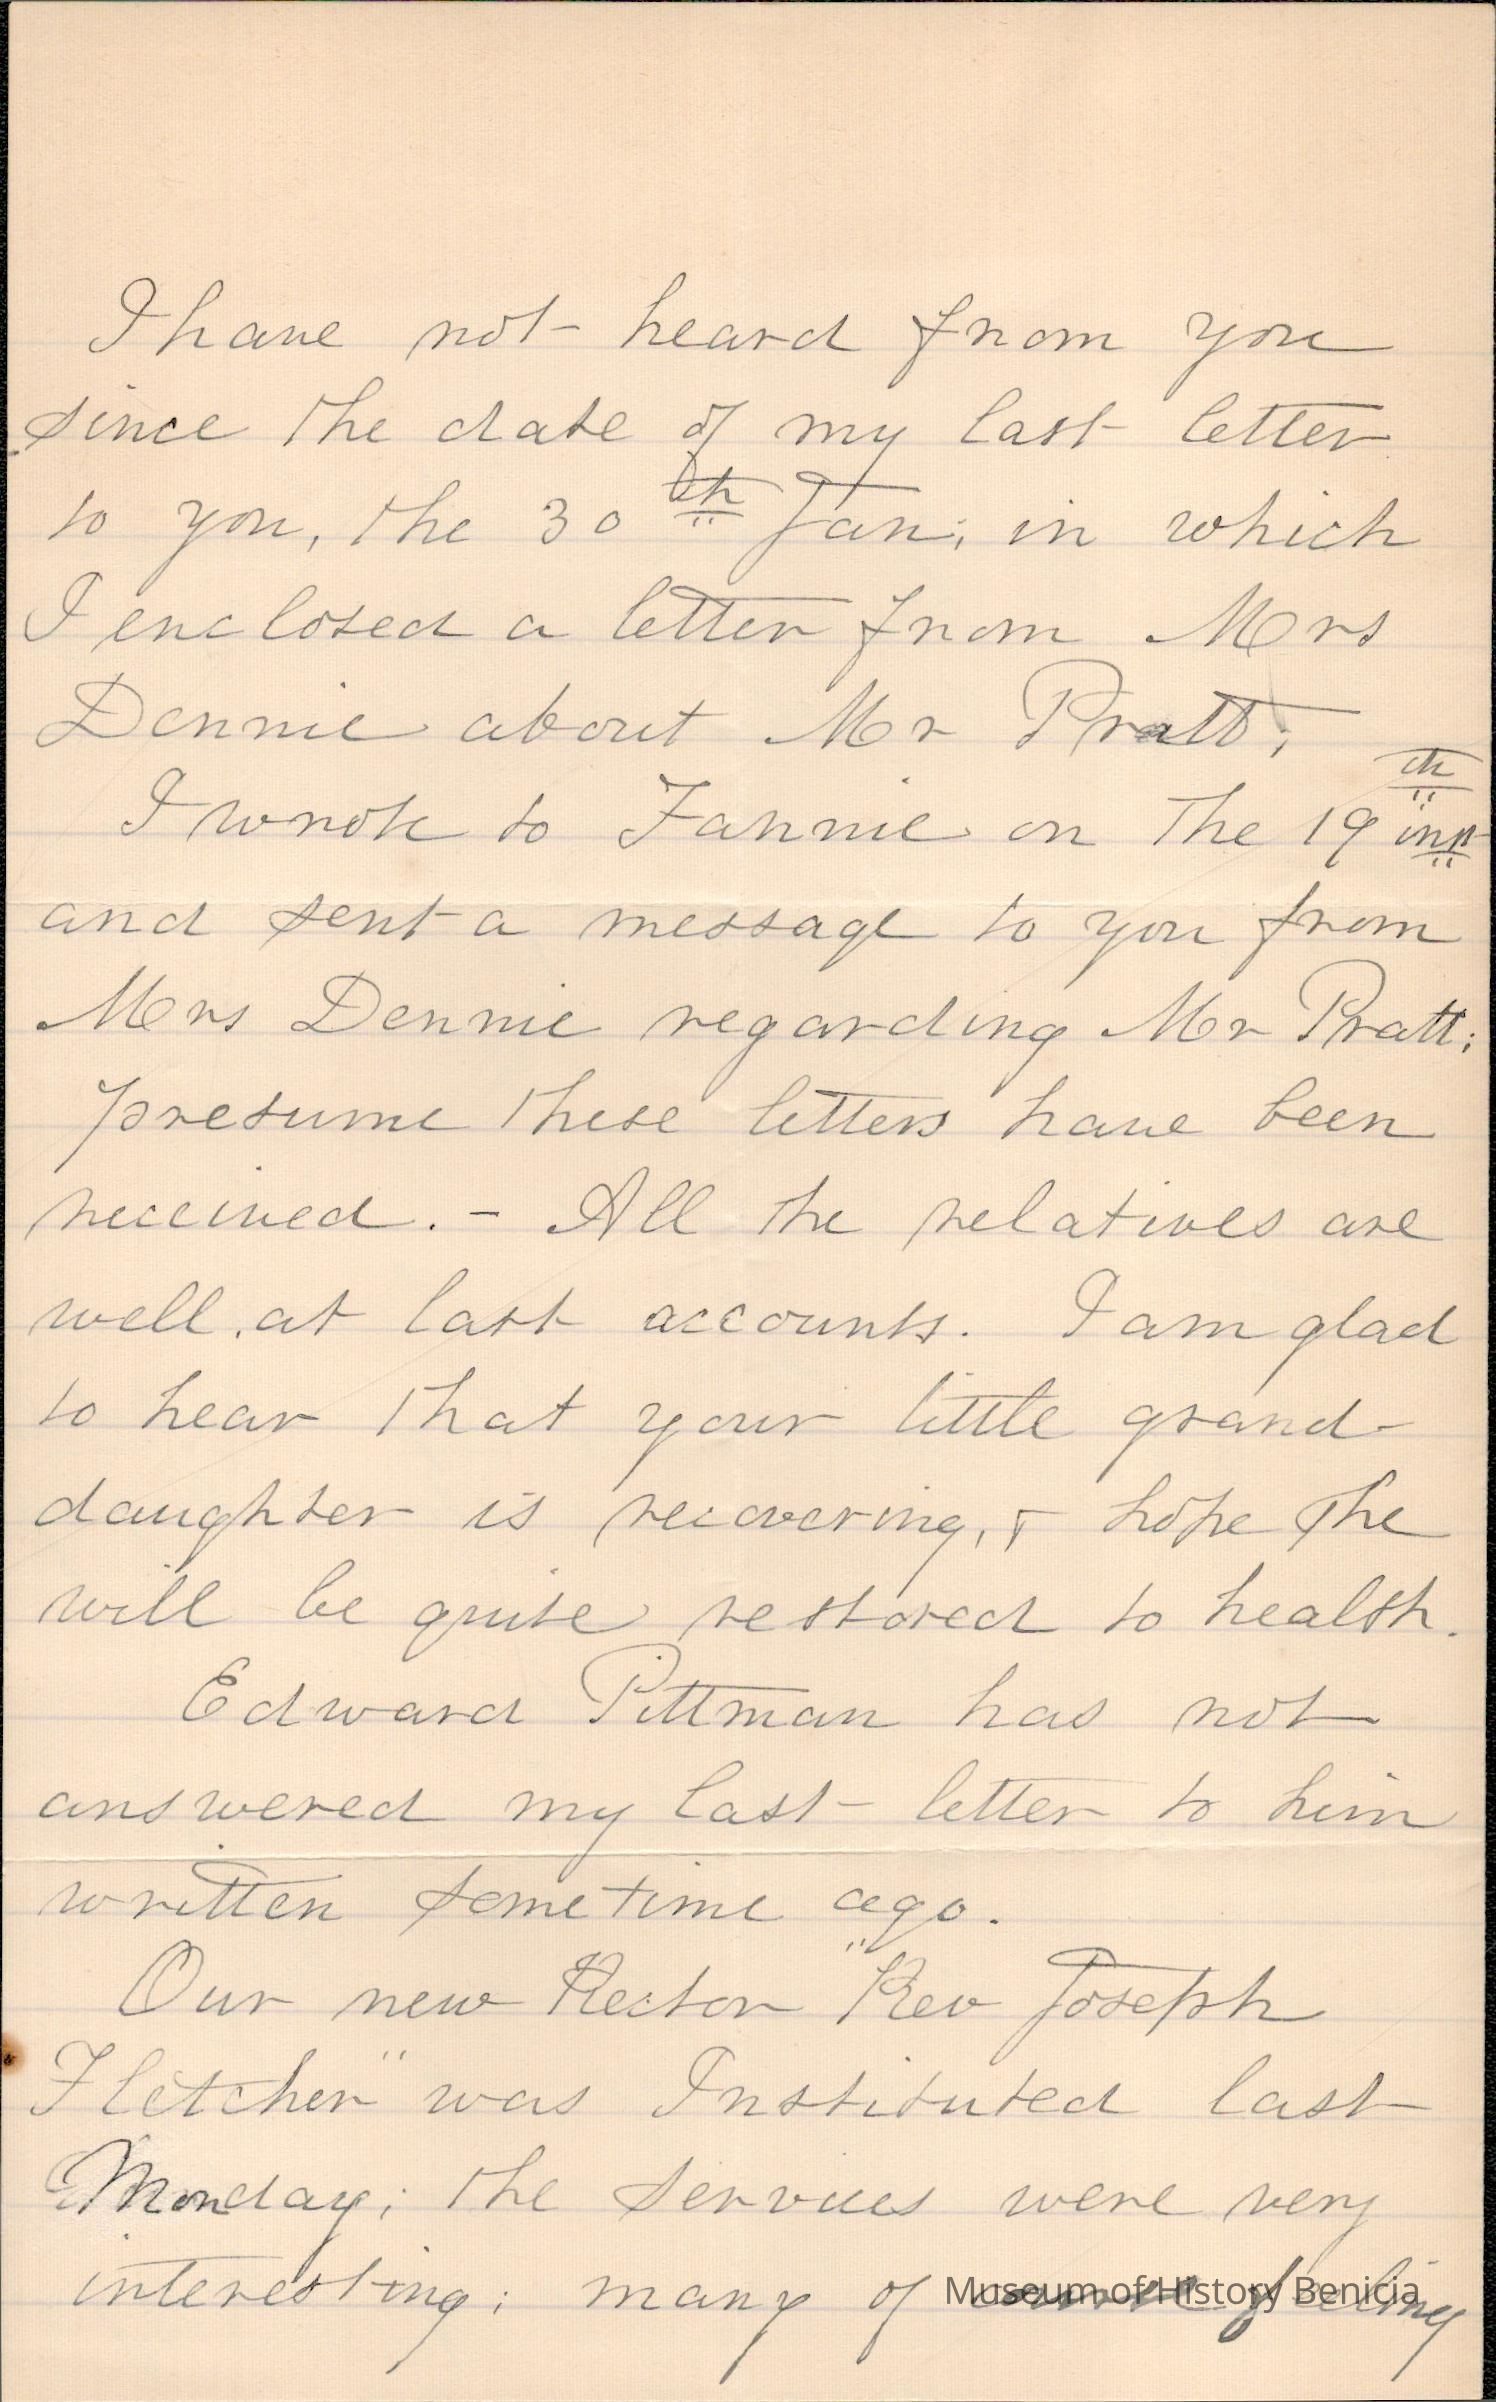 I have not heard from you
since the date of my last letter
to you, the 30th Jan; in which
I enclosed a letter from Mrs
Dennie about Mr Pratt;
I wrote to Fannie on the 19th inst
and sent a message to you from
Mrs Dennie regarding Mr Pratt;
presume these letters have been
received. - All the relatives are
well, at last accounts. I am glad
to hear that your little grand-
daughter is recovering, & hope she
will be quite restored to health.
Edward Pittman has not
answered my last letter to him
written sometime ago.
Our new Rector "Rev Joseph
Fletcher" was Instituted last
Monday; the services were very
interesting; many of feeling
Museum of History Benicia